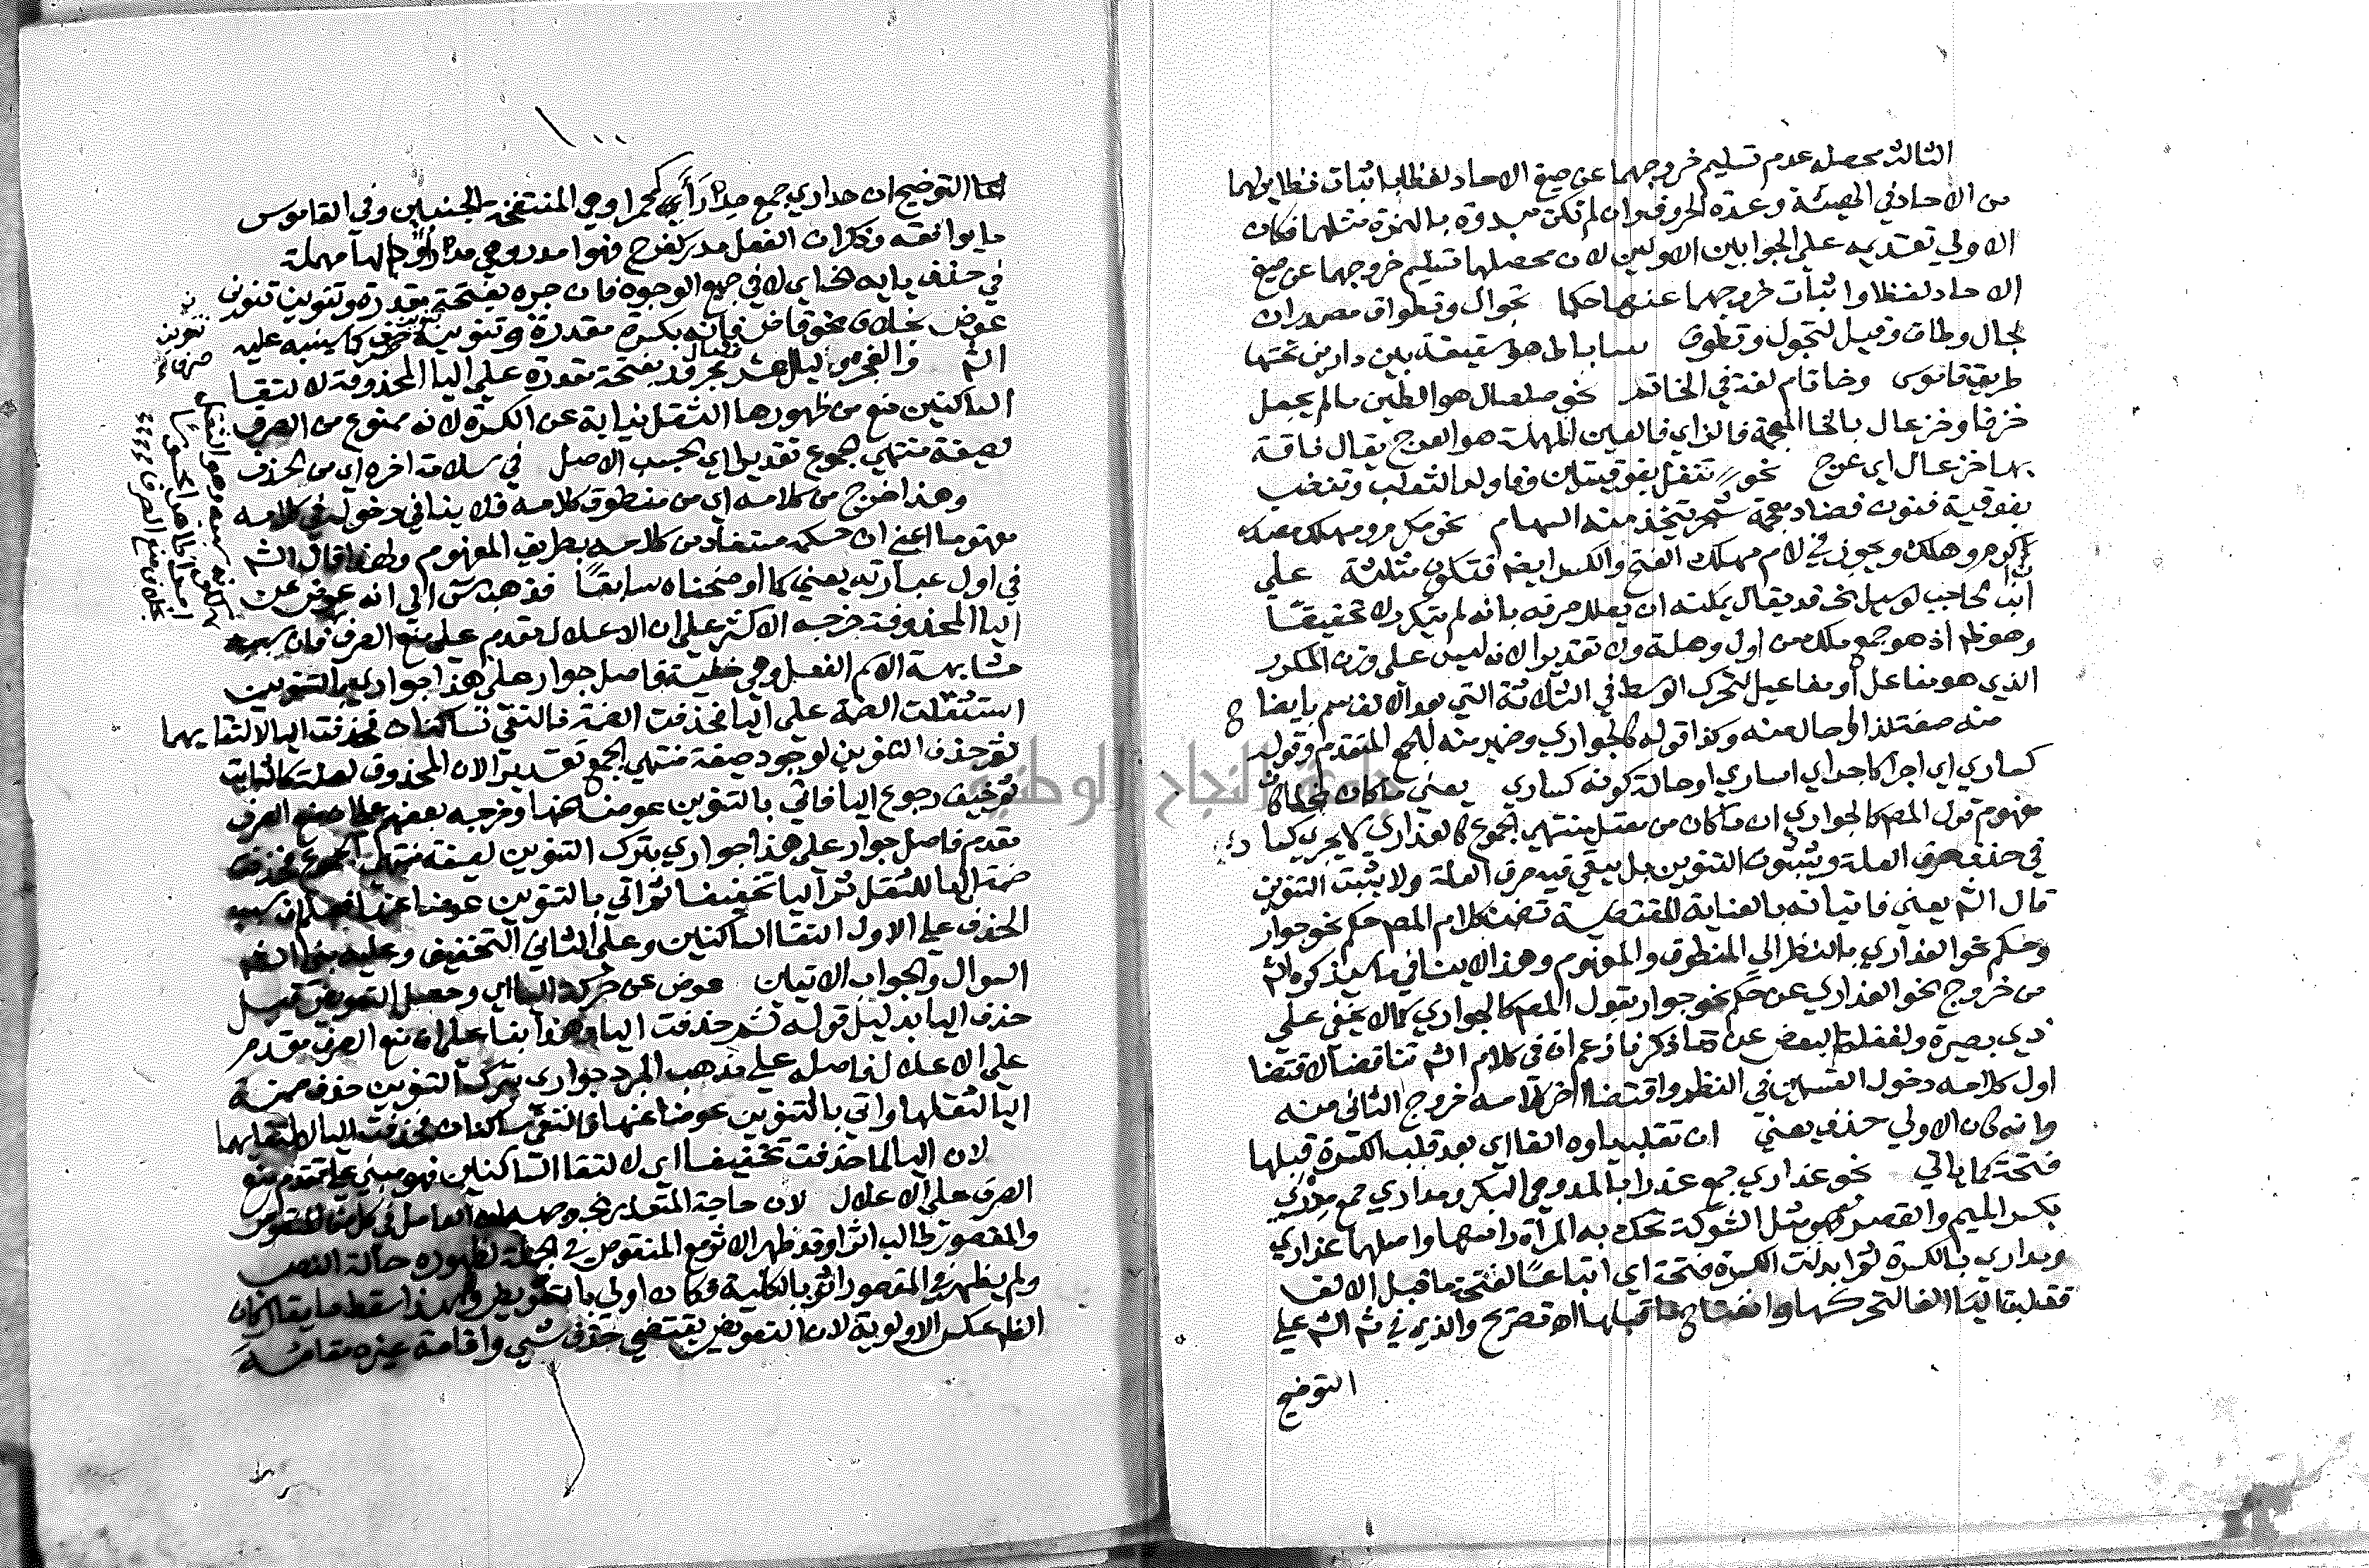 الثالث محصله عدم تسليم خروجهما عن صيغ الاحاد لفظا باثبات نظاير لهما
من الاحاد في الهيئة وعدة الحروف وان لم تكن مبدوة بالهمزة مثلهما فكان
الاولي تقديمه علي الجوابين الاولين لان محصلهما تسليم خروجهما عن صيغ
الاحاد لفظا واثبات خروجهما عنها حكما تجوال وتطواف مصدران
لجال وطاف وقيل لتجول وتطوف ساباط هو سقيفة بين دارين تحتها
طريق قاموس وخاتام لغة في الخاتم نحو صلصال هو الطين ما لم يجعل
خزفا وخزعال بالخا المعجمة فالزاي فالعين المهملة هو العرج يقال ناقة
بها خزعال اي عرج نحو تتفل بفوقيتين وفا ولد الثعلب وتنضب
بفوقية فنون فضاد معجمة شجر تتخذ منه السهام نحو مكرم ومهلك مصدر
كرم وهلك ويجوز في لام مهلك الفتح والكسر ايضا فتكون مثلثة علي
ابن الحاجب لو سهل الخ قد يقال يمكنه ان يعلل صرفه بانه لم يتكرر لا تحقيقا
وهو ظم اذ هو جمع ملك من اول وهلة ولا تقديرا لانه ليس علي وزن المكرر
الذي هو مفاعل او مفاعيل لتحرك الوسط في الثلاثة التي بعد الالف سم بايضاح
منه صفة لذا او حال منه وكذا قوله كالجواري وضمير منه للجمع المتقدم وقوله
كساري اي اجرا كاجراي اساري او حالة كونه كساري يعني ما كان الخ لما كان
مفهوم قول المص كالجواري ان ما كان من معتل منتهي الجموع كالعذاري لا يجري كسار
في حذف حرف العلة وثبوت التنوين بل يبقي فيه حرف العلة ولا يثبت التنوين
قال الشم يعني فاتيانه بالعناية المقتضية تضمن كلام المص حكم نحو جوار
وحكم نحو العذاري بالنظر الي المنطوق والمفهوم وهذا لا ينافي ما سيذكره الشم
من خروج نحو العذاري عن حكم نحو جوار بقول المص كالجواري كما لا يخفي علي
ذي بصيرة ولغفلة البعض عن ما ذكرنا زعم ان في كلام الشم تناقضا لاقتضا
اول كلامه دخول القسمين في النظم واقتضا اخر كلامه خروج الثاني منه
وانه كان الاولي حذف يعني ان تقلب ياوه الفا اي بعد قلب الكسرة قبلها
فتحة كما ياتي نحو عذاري جمع عذرا بالمد وهي البكر ومداري جمع مدري
بكسر الميم والقصر وهو مثل الشوكة تحك به المراة راسها واصلهما عذاري
ومداري بالكسرة ثم ابدلت الكسرة فتحة اي اتباعا لفتحة ما قبل الالف
فقلبت اليا الفا لتحركها وانفتاح ما قبلها اه تصريح والذي في شم الشم علي
التوضيح
١٠٠
التوضيح ان مداري جمع مدراي كحمرا وهي المنتفخة الجنبين وفي القاموس
ما يوافقه وذكر ان الفعل مدر كفرح فهو امدر وهي مدرا
في حذف يايه الخ اي لا في جميع الوجوه فان جره بفتحة مقدرة وتنوينه تنوين
عوض بخلاف نحو قاض فانه بكسرة مقدرة وتنوينه تنوين صرف كما سينبه عليه
الشم والفجر وليال عشر بفتحة مقدرة علي اليا المحذوفة لالتقا
الساكنين منع من ظهورها الثقل نيابة عن الكسرة لانه ممنوع من الصرف
لصيغة منتهي الجموع تقديرا اي بحسب الاصل في سلامة اخره اي من الحذف
وهذا خرج من كلامه اي من منطوق كلامه فلا ينافي دخوله في كلامه
مفهوما اعني ان حكمه مستفاد من كلامه بطريق المفهوم ولهذا قال الشم
في اول عبارته يعني كما اوضحناه سابقا فذهب س الي انه عوض عن
اليا المحذوفة خرجه الاكثر علي ان الاعلال مقدم علي منع الصرف فان سببه
مشابهة الاسم الفعل وهي خفية فاصل جوار علي هذا جواري بالتنوين
استثقلت الضمة علي اليا فحذفت الضمة فالتقي ساكنان فحذفت اليا لالتقايهما
ثم حذف التنوين لوجود صيغة منتهي الجموع تقديرا لان المحذوف لعلة كالثابت
ثم خيف رجوع اليا فاتي بالتنوين عوضا عنها وخرجه بعضهم علي ان منع الصرف
مقدم فاصل جوار علي هذا جواري بترك التنوين لصيغة منتهي الجموع فحذفت
ضمة اليا للثقل ثم اليا تخفيفا ثم اتي بالتنوين عوضا عنها
الحذف علي الاول التقا الساكنين وعلي الثاني التخفيف وعليه بني الشم
السوال والجواب الاتيان عوض عن حركة اليا اي وحصل التعويض قبل
حذف اليا بدليل قوله ثم حذفت اليا وهذا بنا علي ان منع الصرف مقدم
علي الاعلال فاصله علي مذهب المبرد جواري بترك التنوين حذف ضمة
اليا لثقلها واتي بالتنوين عوضا عنها فالتقي ساكنان فحذفت اليا لالتقايهما
لان اليا لما حذفت تخفيفا اي لالتقا الساكنين فهو مبني علي تقدم منع
الصرف علي الاعلال لان حاجة المتعذر الخ وجهه ان العامل في كل من المنقوص
والمقصور طالب اثرا وقد ظهر الاثر مع المنقوص في الجملة لظهوره حالة النصب
ولم يظهر في المقصور اثر بالكلية فكان اولي بالتعويض ولهذا سقط ما يقال كان
الظم عكس الاولوية لان التعويض يقتضي حذف شي واقامة غيره مقامه